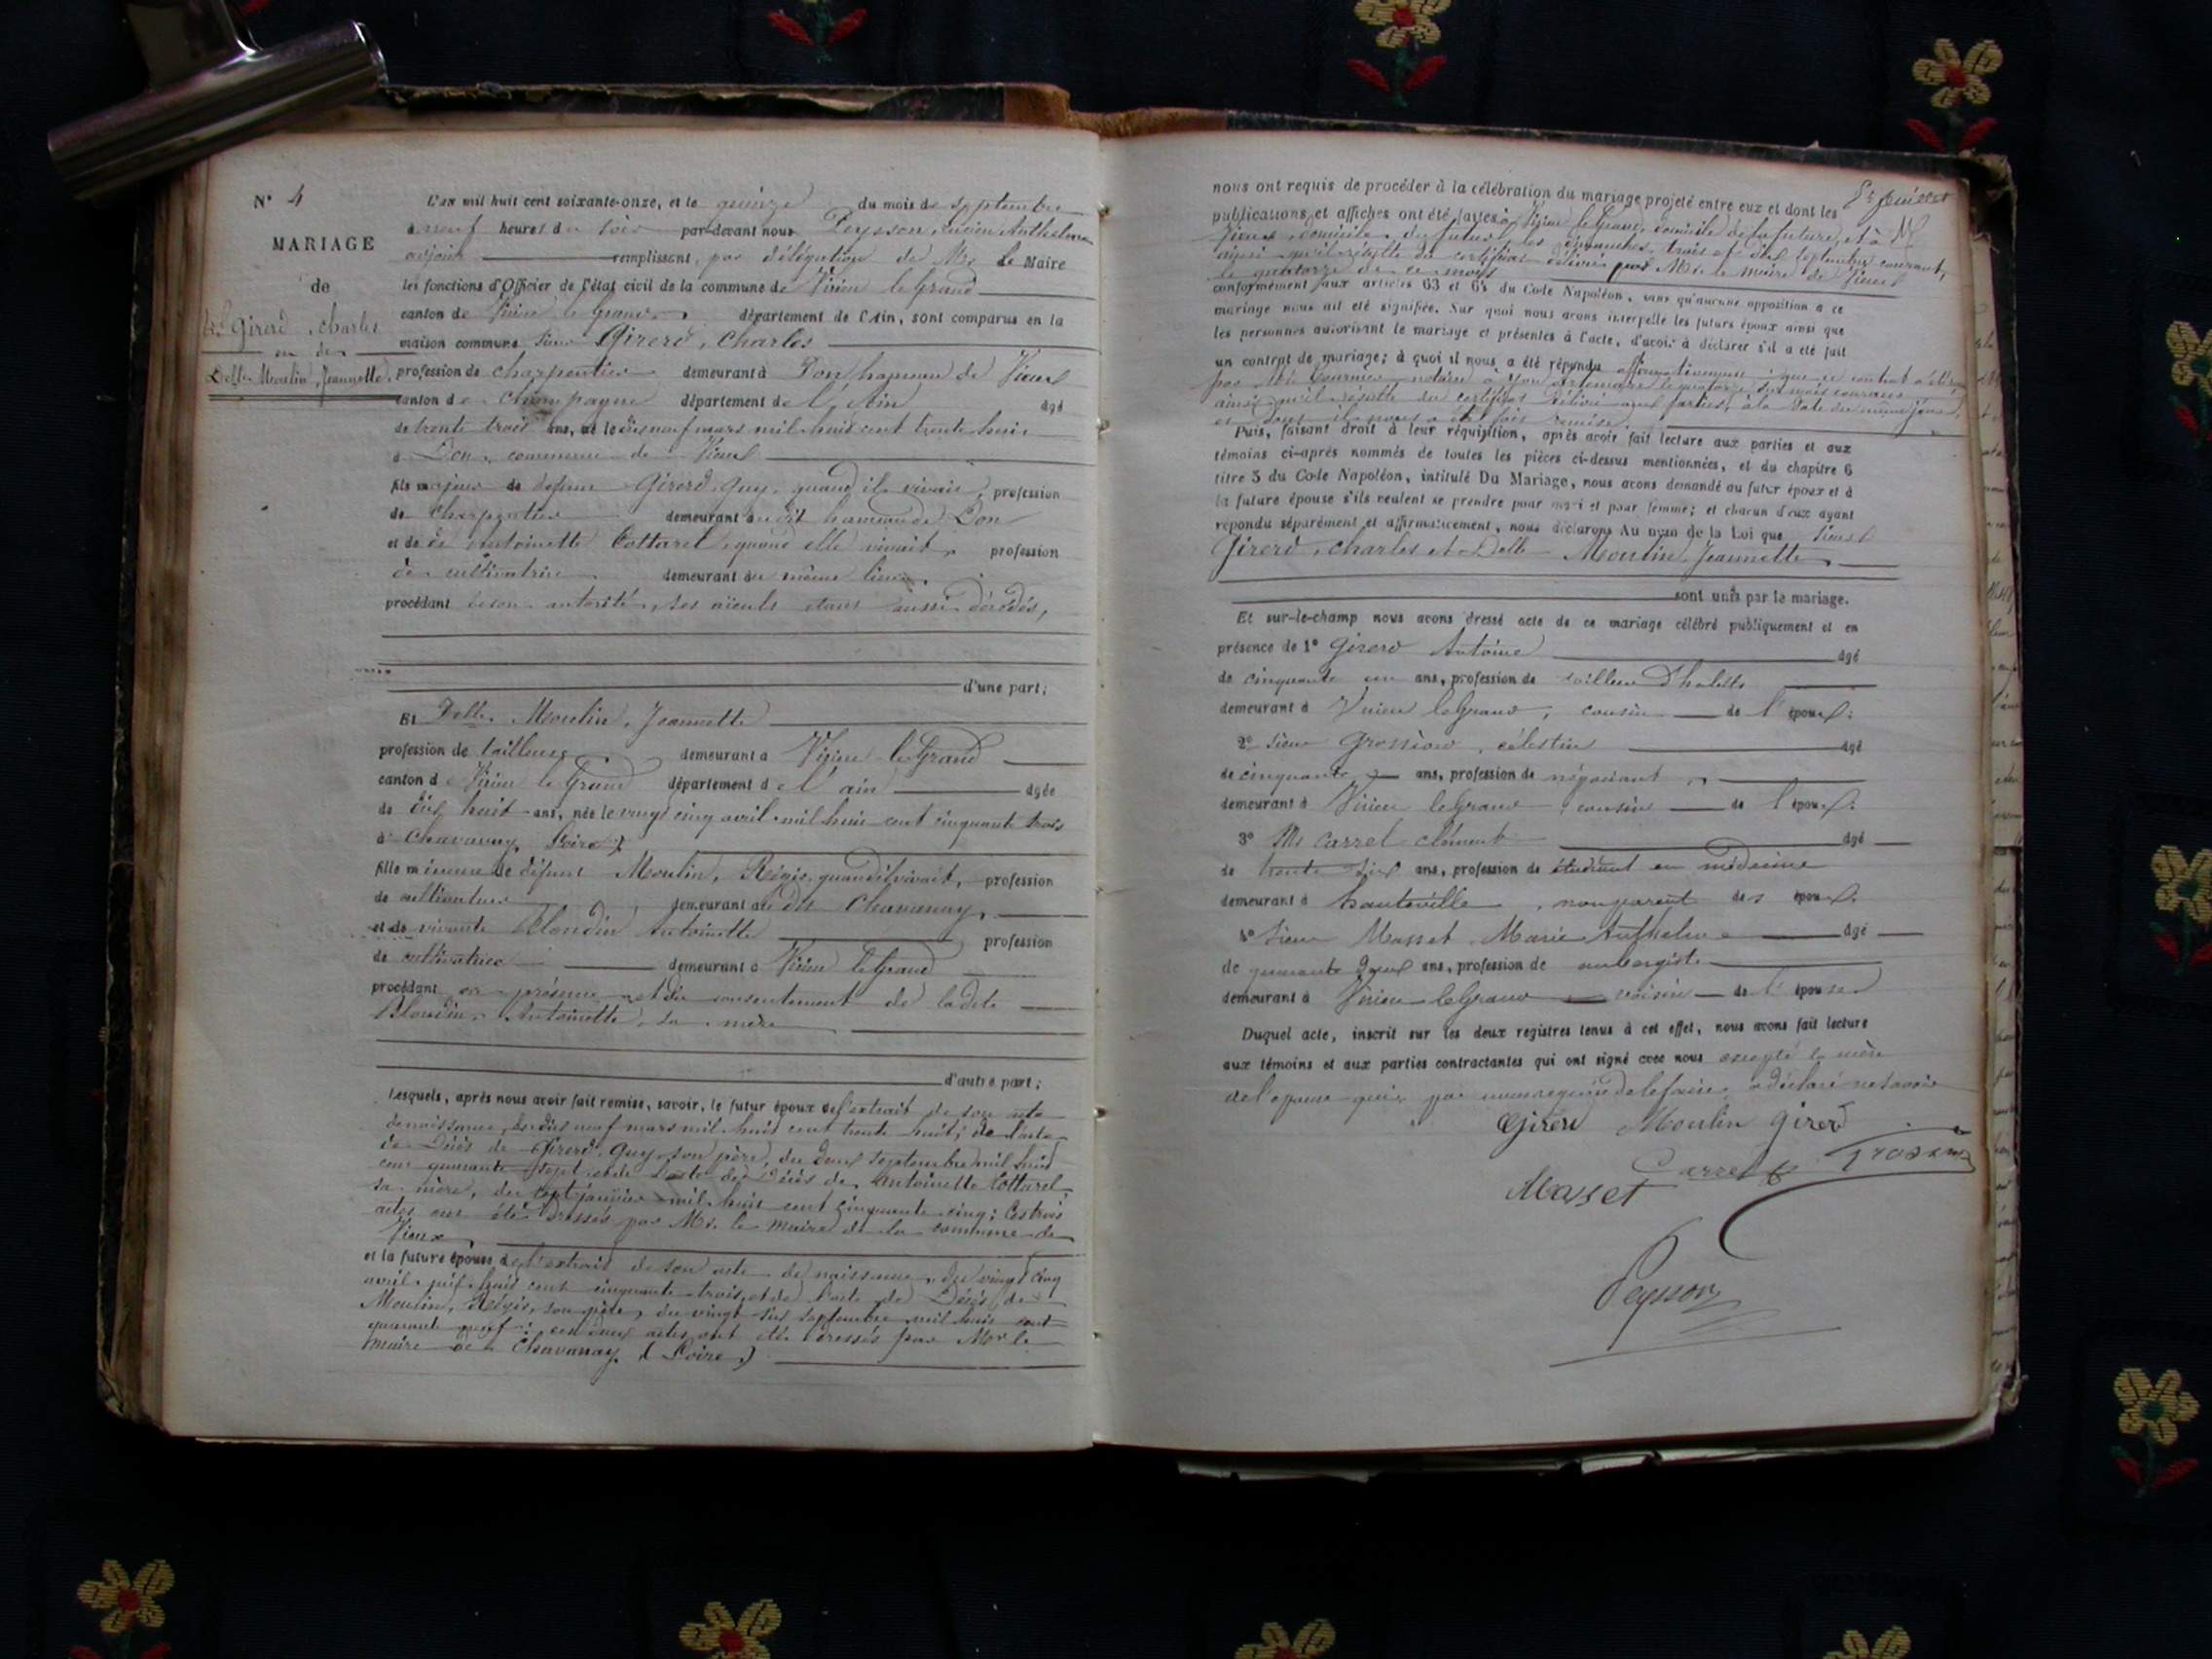 N° 4
MARIAGE
de
Girerd, Charles
et de
Delle Moulin, Jeannette.
L'an mil huit cent soixante-onze, et le quinze du mois de septembre
à neuf heures du soir par-devant nous Peysson, Lucien Anthelme
adjoint remplissant, par délégation de Mr le Maire
les fonctions d'Officier de l'état civil de la commune de Virieu le Grand
canton de Virieu le Grand, département de l'Ain, sont comparus en la
maison commune Sieur Girerd, Charles
profession de charpentier demeurant à Don hameau de Vieux
canton de Champagne département de l'Ain âgé
de trente trois ans, né le dix neuf mars mil huit cent trente huit
à Don, commune de Vieux
fils majeur de défunt Girerd, Guy, quand il vivait, profession
de charpentier demeurant au dit hameau de Don
et de dé Antoinette Cottarel, quand elle vivait, profession
de cultivatrice demeurant au même lieu,
procédant de son autorité, ses aïeuls étant aussi décédés,
d'une part;
Et Delle Moulin, Jeannette
profession de tailleuse demeurant à Virieu le Grand
canton de Virieu le Grand département de l'ain âgée
de dix huit ans, née le vingt cinq avril mil huit cent cinquante trois
à Chavanay (Loire)
fille mineure de défunt Moulin, Régis, quand il vivait, profession
de cultivateur demeurant au dit Chavanay,
et de vivante Blondin Antoinette profession
de cultivatrice demeurant à Virieu le Grand
procédant en présence et du consentement de ladite
Blondin, Antoinette, sa mère
d'autre part;
Lesquels, après nous avoir fait remise, savoir, le futur époux de l'extrait de son acte
de naissance, du dix neuf mars mil huit cent trente huit; de l'acte
de Décès de Girerd, Guy, son père, du deux septembre mil huit
cent quarante sept, et de l'acte de Décès de Antoinette Cottarel,
sa mère, du sept janvier mil huit cent cinquante cinq; Ces trois
actes ont été dressés par Mr. le maire de la commune de
Vieux
et la future épouse de l'extrait de son acte de naissance, du vingt cinq
avril mil huit cent cinquante trois, et de l'acte de Décès de
Moulin, Régis, son père, du vingt six septembre mil huit cent
quarante neuf; ces deux actes ont été dressés par Mr le
maire de Chavanay (Loire)
nous ont requis de procéder à la célébration du mariage projeté entre eux et dont les
publications et affiches ont été faites à Virieu le Grand, domicile de la future, et à
Vieux, domicile du futur, les dimanches trois et dix septembre courant,
ainsi qu'il résulte du certificat délivré par Mr. le maire de Vieux
le quatorze de ce mois
conformément aux articles 63 et 64 du Code Napoléon, sans qu'aucune opposition à ce
mariage nous ait été signifiée. Sur quoi nous avons interpellé les futurs époux ainsi que
les personnes autorisant le mariage et présentes à l'acte, d'avoir à déclarer s'il a été fait
un contrat de mariage; à quoi il nous a été répondu affirmativement, que ce contrat a été
par Me notaire à le quatorze du mois courant
ainsi qu'il résulte du certificat délivré aux parties, à la date du même jour,
et dont il nous a été fait remise.
Puis, faisant droit à leur réquisition, après avoir fait lecture aux parties et aux
témoins ci-après nommés de toutes les pièces ci-dessus mentionnées, et du chapitre 6
titre 5 du Code Napoléon, intitulé Du Mariage, nous avons demandé au futur époux et à
la future épouse s'ils veulent se prendre pour mari et pour femme; et chacun d'eux ayant
répondu séparément et affirmativement, nous déclarons Au nom de la Loi que Sieur
Girerd, Charles et Delle Moulin, Jeannette,
sont unis par le mariage.
Et sur-le-champ nous avons dressé acte de ce mariage célébré publiquement et en
présence de 1° Girerd Antoine âgé
de cinquante un ans, profession de tailleur d'habits
demeurant à Virieu le Grand, cousin de l'époux.
2° Sieur Grossiord, célestin âgé
de cinquante ans, profession de négociant
demeurant à Virieu le Grand, cousin de l'époux.
3° Mr Carrel clément âgé
de trente six ans, profession de étudiant en médecine
demeurant à hauteville, non parent des époux.
4° Sieur Masset Marie Anthelme âgé
de quarante deux ans, profession de aubergiste
demeurant à Virieu le Grand voisin de l'épouse
Duquel acte, inscrit sur les deux registres tenus à cet effet, nous avons fait lecture
aux témoins et aux parties contractantes qui ont signé avec nous excepté la mère
de l'épouse qui, par nous requise de le faire, a déclaré ne savoir
Girerd Moulin Girerd
Carrel
Masset
Peysson